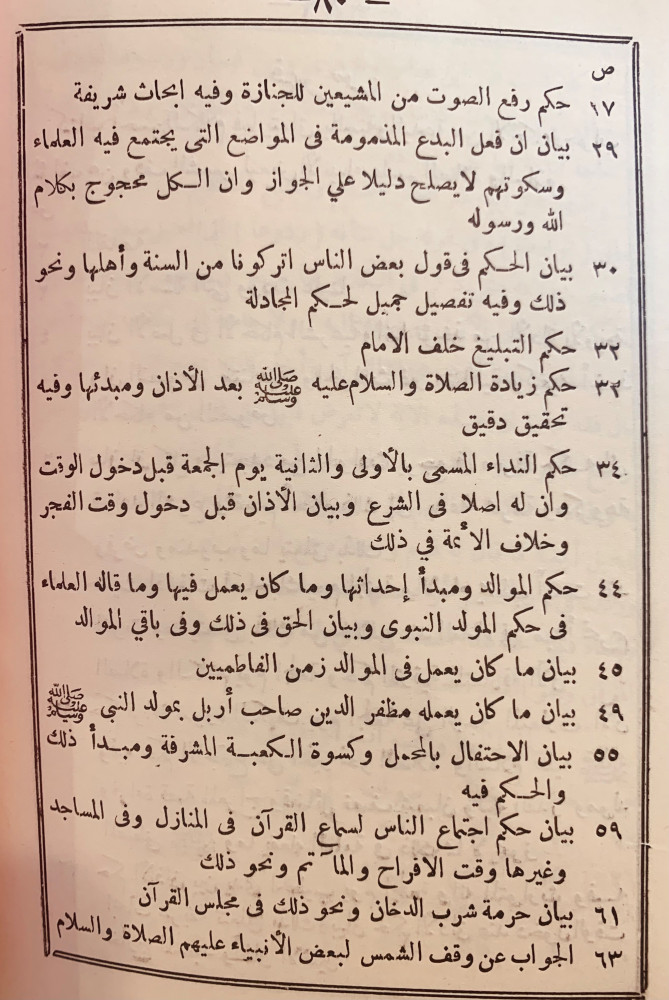 — ٨٠ —
ص
١٧ حكم رفع الصوت من المشيعين للجنازة وفيه ابحاث شريفة
٢٩ بيان ان فعل البدع المذمومة فى المواضع التى يجتمع فيه العلماء
وسكوتهم لايصلح دليلا علي الجواز وان الكل محجوج بكلام
الله ورسوله
٣٠ بيان الحكم فى قول بعض الناس اتركونا من السنة وأهلها ونحو
ذلك وفيه تفصيل جميل لحكم المجادلة
٣٢ حكم التبليغ خلف الامام
٣٢ حكم زيادة الصلاة والسلام عليه ﷺ بعد الأذان ومبدئها وفيه
تحقيق دقيق
٣٤ حكم النداء المسمى بالأولى والثانية يوم الجمعة قبل دخول الوقت
وان له اصلا فى الشرع وبيان الأذان قبل دخول وقت الفجر
وخلاف الأئمة في ذلك
٤٤ حكم الموالد ومبدأ إحداثها وما كان يعمل فيها وما قاله العلماء
فى حكم المولد النبوى وبيان الحق فى ذلك وفى باقي الموالد
٤٥ بيان ما كان يعمل فى الموالد زمن الفاطميين
٤٩ بيان ما كان يعمله مظفر الدين صاحب أربل بمولد النبي ﷺ
٥٥ بيان الاحتفال بالمحمل وكسوة الكعبة المشرفة ومبدأ ذلك
والحكم فيه
٥٩ بيان حكم اجتماع الناس لسماع القرآن فى المنازل وفى المساجد
وغيرها وقت الافراح والمآتم ونحو ذلك
٦١ بيان حرمة شرب الدخان ونحو ذلك فى مجلس القرآن
٦٣ الجواب عن وقف الشمس لبعض الأنبياء عليهم الصلاة والسلام